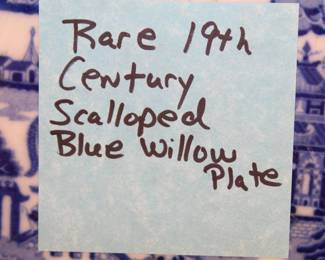 Rare 19th
Century
Scalloped
Blue Willow
Plate